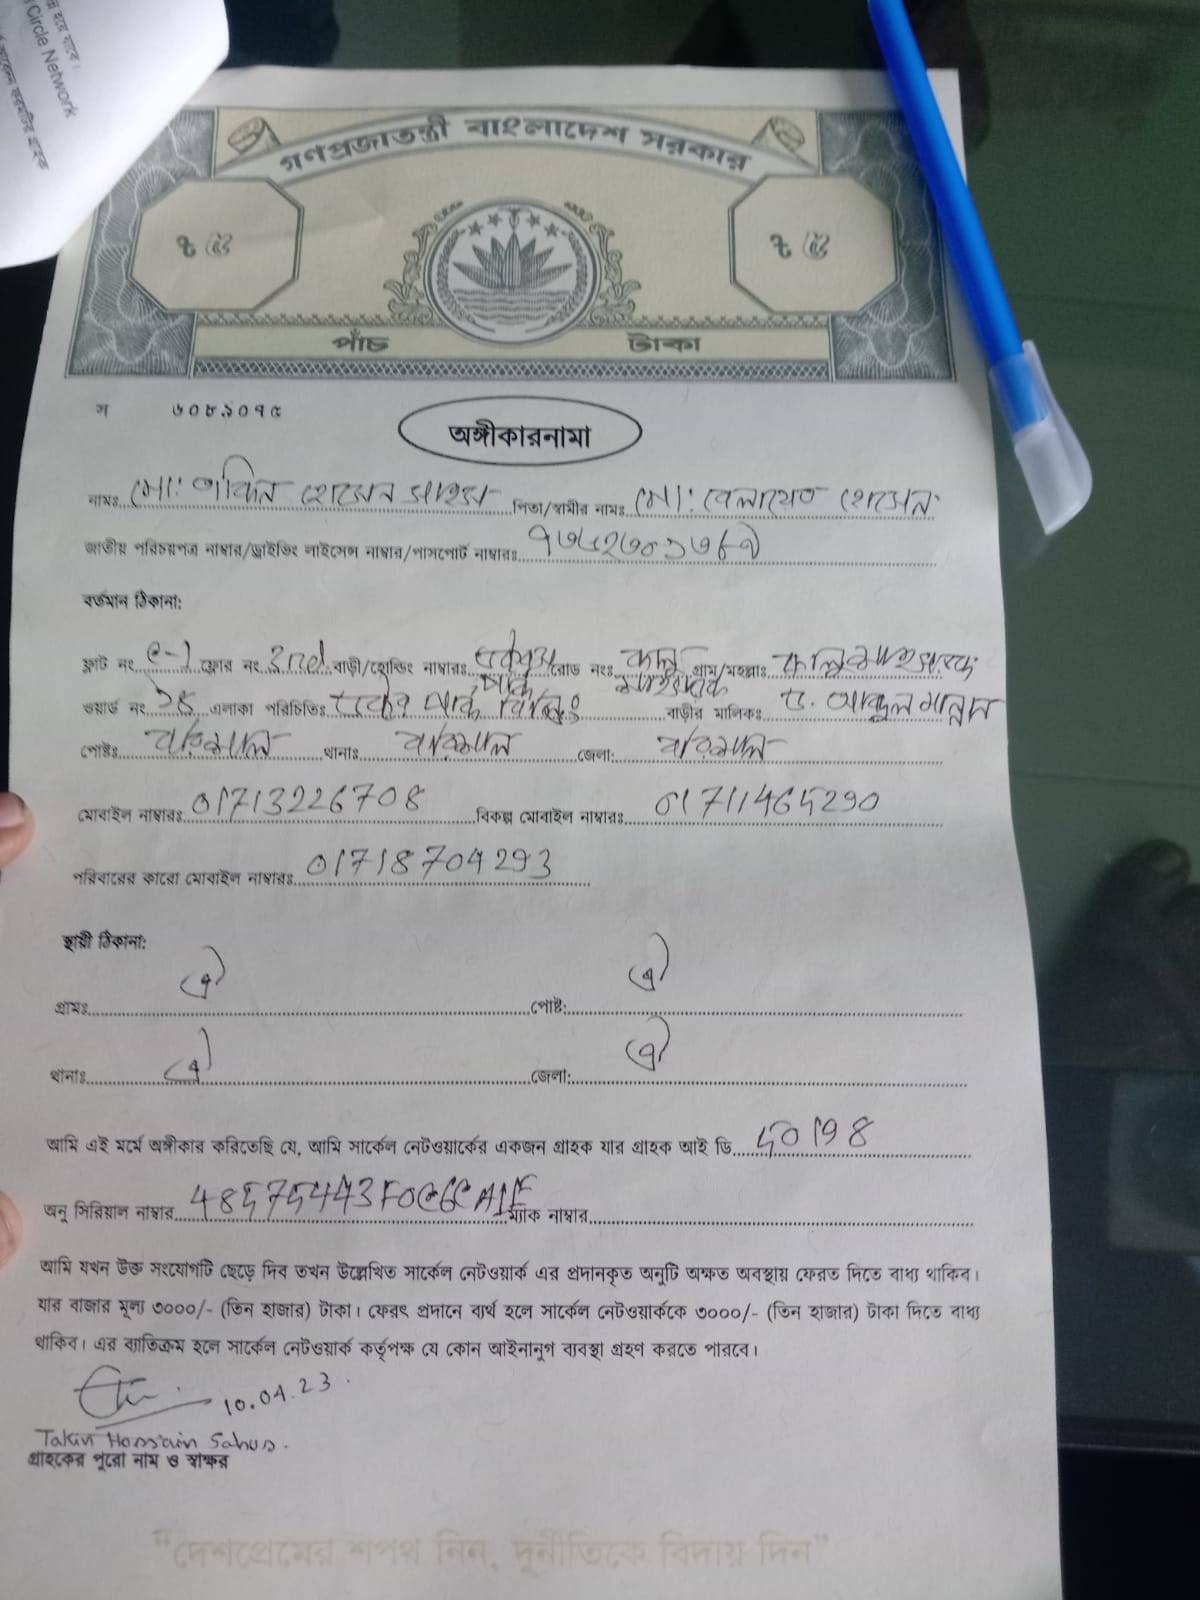 হয়ে যাবে।
Circle Network
গণপ্রজাতন্ত্রী বাংলাদেশ সরকার
৳ ৫ ৳ ৫
পাঁচ টাকা
স ৬০৮৯০৭৫
অঙ্গীকারনামা
নামঃ মো: তাকিন হোসেন সাহস পিতা/স্বামীর নামঃ মো: বেলায়েত হোসেন
জাতীয় পরিচয়পত্র নাম্বার/ড্রাইভিং লাইসেন্স নাম্বার/পাসপোর্ট নাম্বারঃ
বর্তমান ঠিকানা:
ফ্লাট নং. e-1 ফ্লোর নং. 2nd বাড়ী/হোল্ডিং নাম্বারঃ রোড নংঃ গ্রাম/মহল্লাঃ
ওয়ার্ড নং এলাকা পরিচিতিঃ বাড়ীর মালিকঃ ড. আব্দুল মান্নান
পোষ্টঃ বরিশাল থানাঃ বরিশাল জেলা: বরিশাল
মোবাইল নাম্বারঃ 01713226708 বিকল্প মোবাইল নাম্বারঃ 01711465290
পরিবারের কারো মোবাইল নাম্বারঃ 01718704293
স্থায়ী ঠিকানা:
গ্রামঃ ঐ পোষ্ট: ঐ
থানাঃ ঐ জেলা: ঐ
আমি এই মর্মে অঙ্গীকার করিতেছি যে, আমি সার্কেল নেটওয়ার্কের একজন গ্রাহক যার গ্রাহক আই ডি 50198
অনু সিরিয়াল নাম্বার ম্যাক নাম্বার
আমি যখন উক্ত সংযোগটি ছেড়ে দিব তখন উল্লেখিত সার্কেল নেটওয়ার্ক এর প্রদানকৃত অনুটি অক্ষত অবস্থায় ফেরত দিতে বাধ্য থাকিব।
যার বাজার মূল্য ৩০০০/- (তিন হাজার) টাকা। ফেরৎ প্রদানে ব্যর্থ হলে সার্কেল নেটওয়ার্ককে ৩০০০/- (তিন হাজার) টাকা দিতে বাধ্য
থাকিব। এর ব্যাতিক্রম হলে সার্কেল নেটওয়ার্ক কর্তৃপক্ষ যে কোন আইনানুগ ব্যবস্থা গ্রহণ করতে পারবে।
10.04.23.
Takin Hossain Sahos.
গ্রাহকের পুরো নাম ও স্বাক্ষর
“দেশপ্রেমের শপথ নিন, দুর্নীতিকে বিদায় দিন”